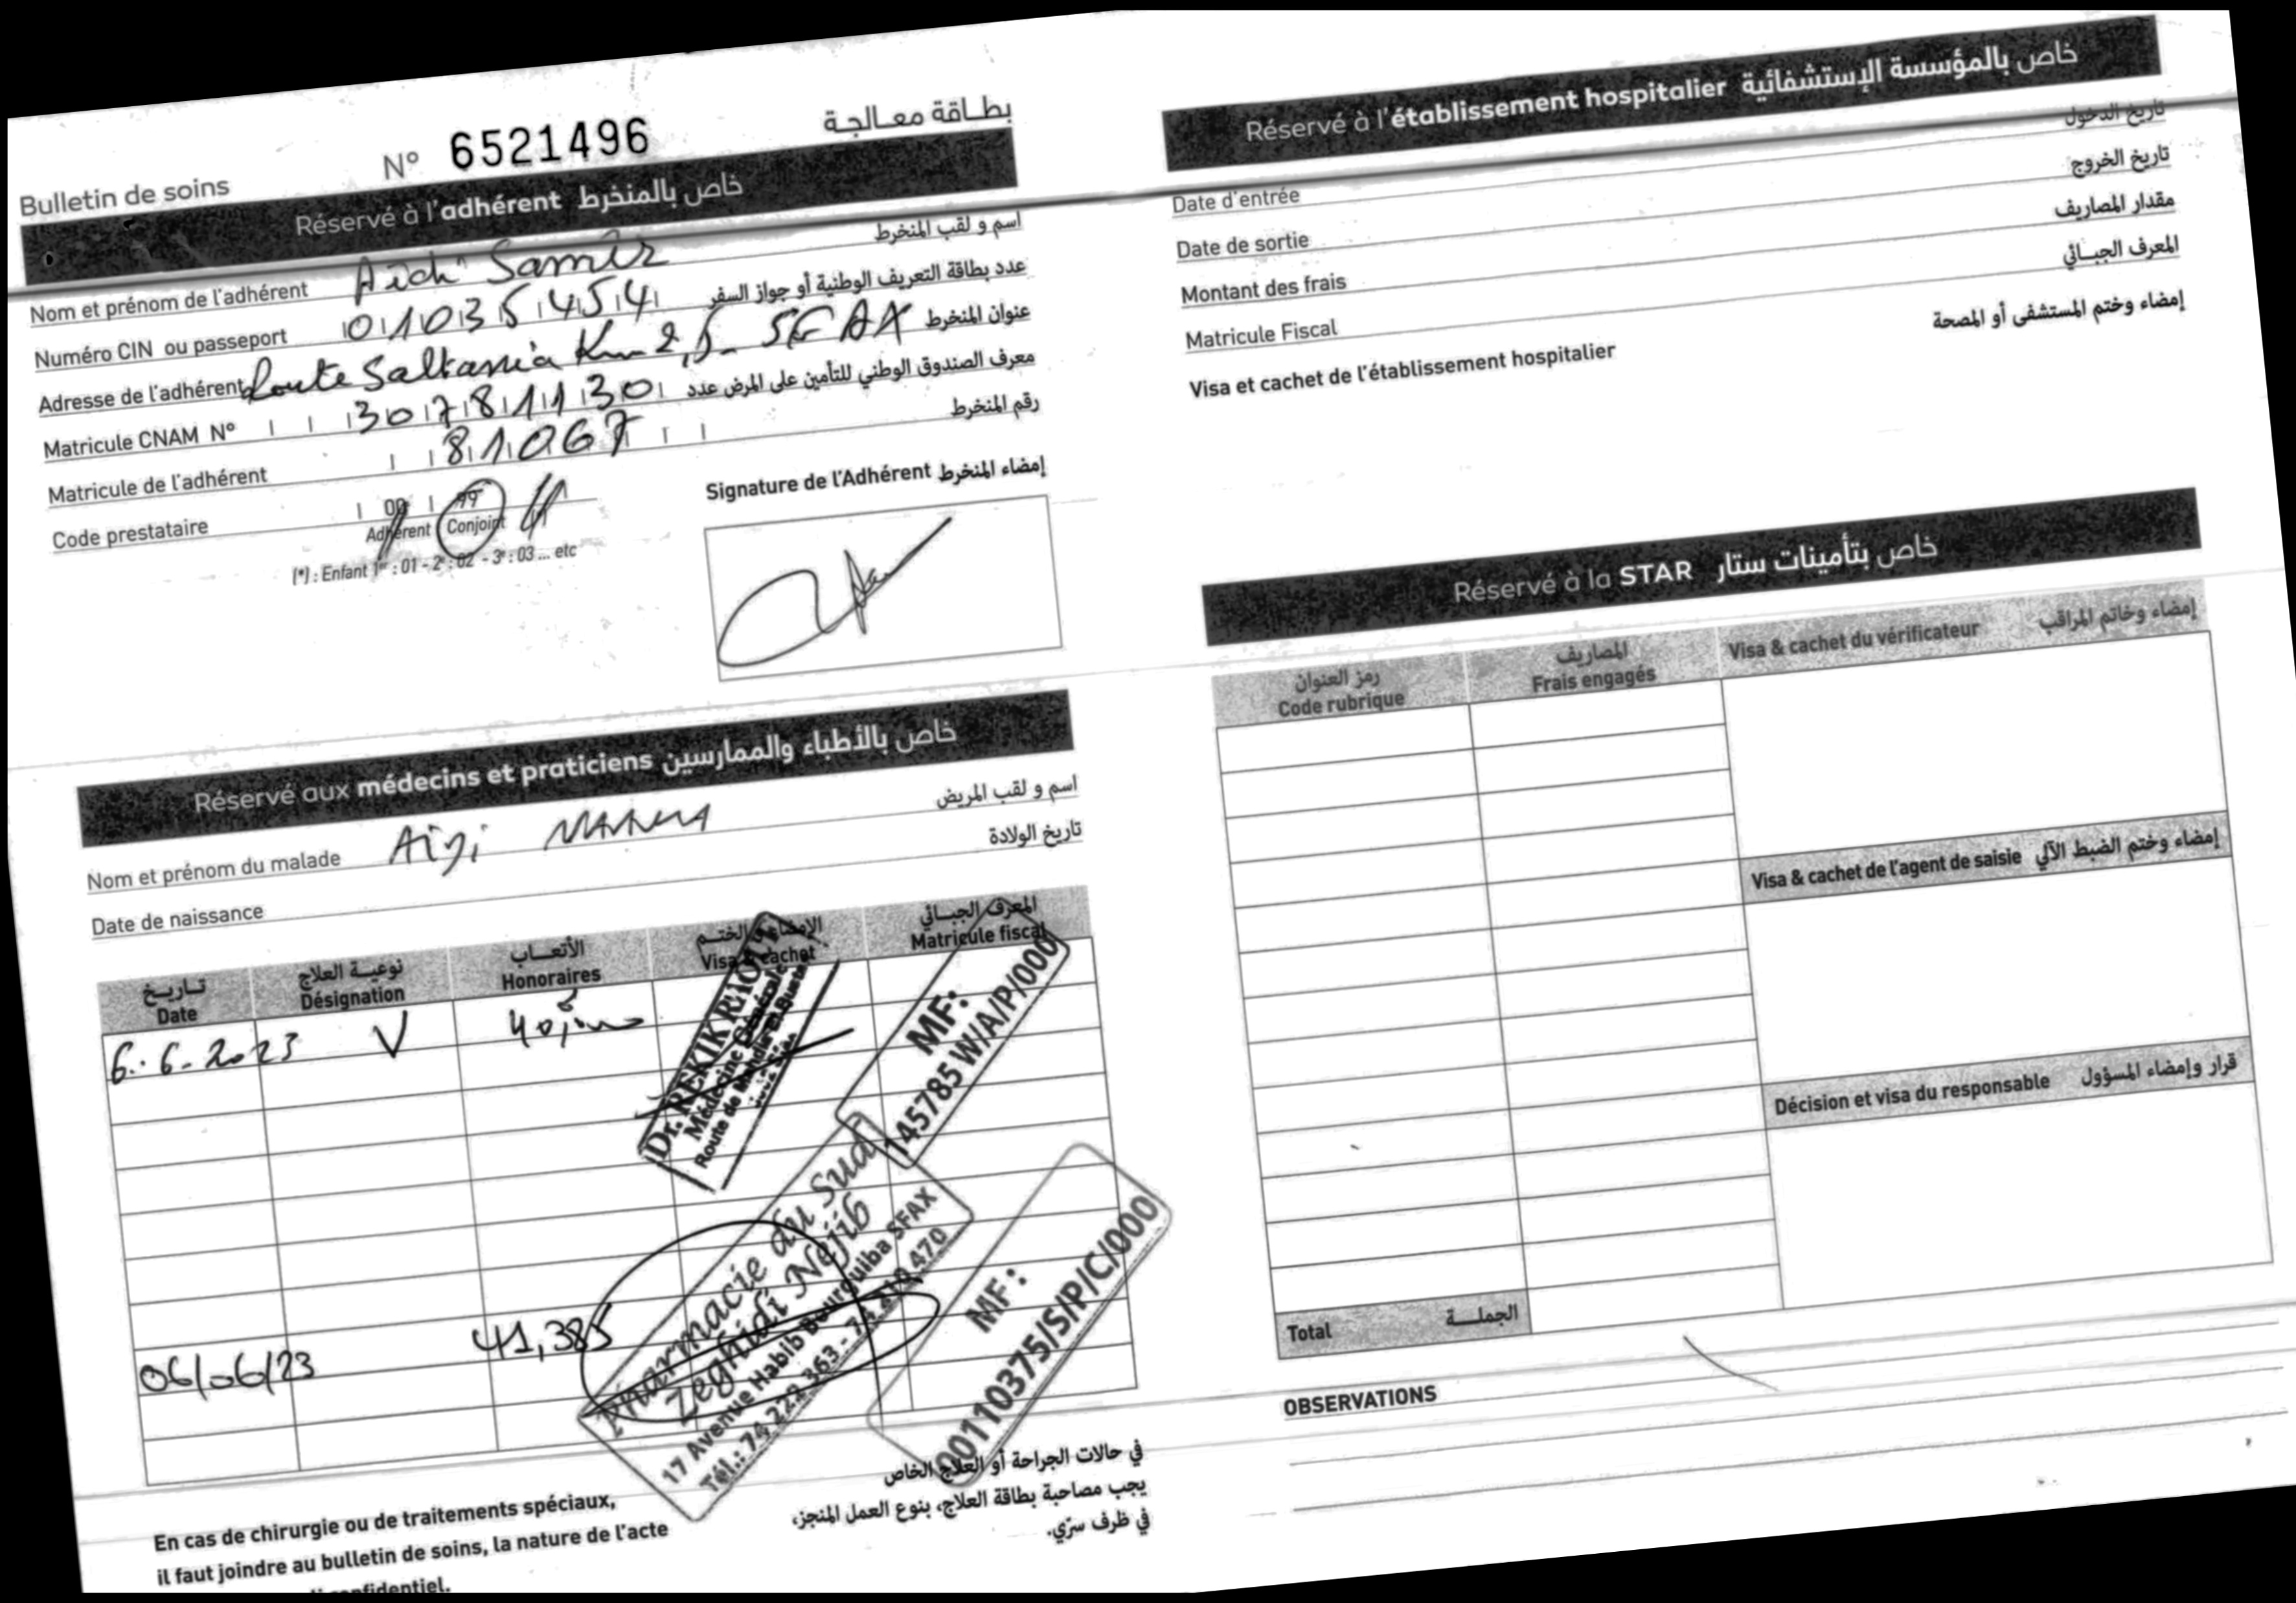 Bulletin de soins N° 6521496 بطـاقة معـالجـة
Réservé à l'adhérent خاص بالمنخرط
Nom et prénom de l'adhérent Aidi Samir اسم و لقب المنخرط
Numéro CIN ou passeport 01035454 عدد بطاقة التعريف الوطنية أو جواز السفر
Adresse de l'adhérent Route Saltania Km 2,5 - SFAX عنوان المنخرط
Matricule CNAM N° 307811130 معرف الصندوق الوطني للتأمين على المرض عدد
Matricule de l'adhérent 81067 رقم المنخرط
Code prestataire 00 99
Adhérent Conjoint
(*) : Enfant 1er : 01 - 2e : 02 - 3e : 03 ... etc
Signature de l'Adhérent إمضاء المنخرط
Réservé aux médecins et praticiens خاص بالأطباء والممارسين
Nom et prénom du malade Aïdi اسم و لقب المريض
Date de naissance تاريخ الولادة
تـاريـخ نوعيـة العلاج الأتعـاب الإمضاء و الختـم المعرف الجبـائي
Date Désignation Honoraires Visa & cachet Matricule fiscal
6. 6. 2023 V
Dr. REKIK
Médecine Générale
Route de Mahdia
MF:
145785 W/A/P/000
06/06/23 41,385
Pharmacie du Sud
Zeghidi Nejib
17 Avenue Habib Bourguiba SFAX
Tél.: 74 222 363 - 74 210 470
MF:
00110375/S/P/C/000
En cas de chirurgie ou de traitements spéciaux,
il faut joindre au bulletin de soins, la nature de l'acte
confidentiel.
في حالات الجراحة أو العلاج الخاص
يجب مصاحبة بطاقة العلاج، بنوع العمل المنجز،
في ظرف سرّي.
Réservé à l'établissement hospitalier خاص بالمؤسسة الإستشفائية
Date d'entrée تاريخ الدخول
Date de sortie تاريخ الخروج
Montant des frais مقدار المصاريف
Matricule Fiscal المعرف الجبـائي
Visa et cachet de l'établissement hospitalier إمضاء وختم المستشفى أو المصحة
Réservé à la STAR خاص بتأمينات ستار
رمز العنوان المصاريف
Code rubrique Frais engagés Visa & cachet du vérificateur إمضاء وخاتم المراقب
Visa & cachet de l'agent de saisie إمضاء وختم الضبط الآلي
Décision et visa du responsable قرار وإمضاء المسؤول
Total الجملـــة
OBSERVATIONS